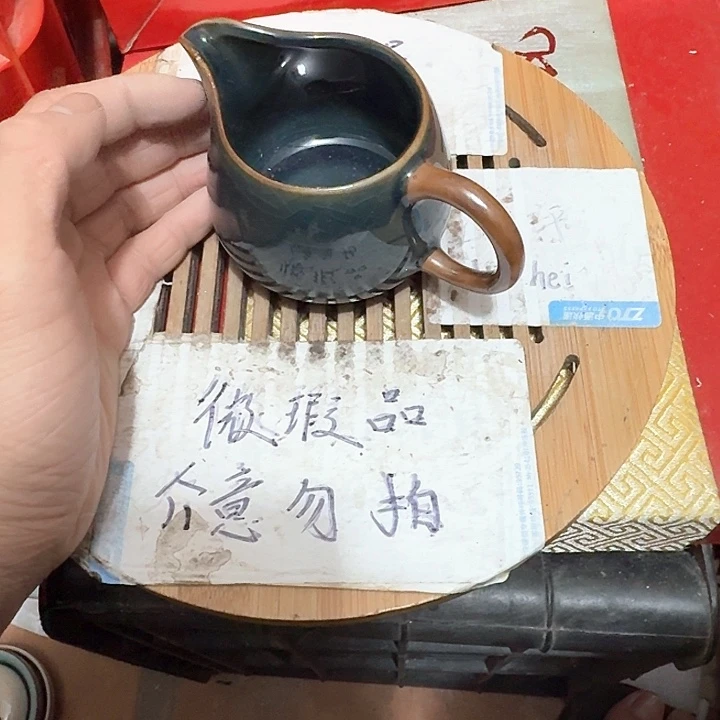 hei
ZTO中通快递
微瑕品
介意勿拍